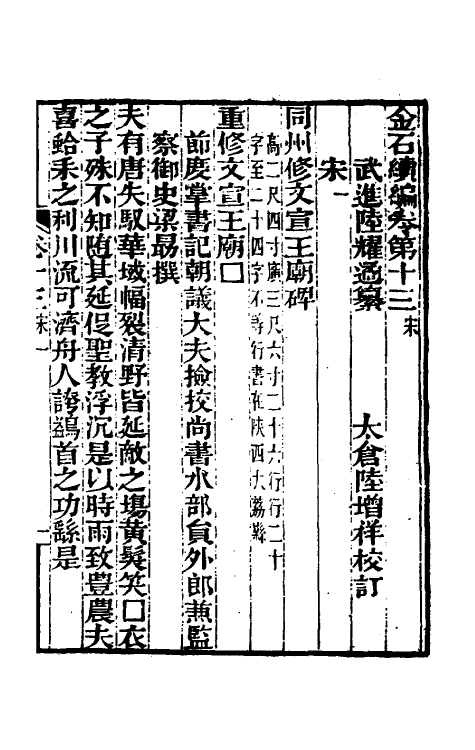 金石續編卷第十三 宋
武進陸耀遹纂 太倉陸增祥校訂
宋一
同州修文宣王廟碑
高二尺四寸廣三尺六寸二十六行行二十
字至二十四字不等行書在陝西大荔縣
重修文宣王廟囗
節度掌書記朝議大夫撿挍尚書水部員外郎兼監
察御史梁勗撰
夫有唐失馭華坡幅裂清野皆延敵之場黄髮笑囗衣
之子殊不知随其延促聖教浮沉是以時雨致豊農夫
喜鉿耒之利川流可濟舟人誇鷁首之功繇是
卷十三 宋一 一